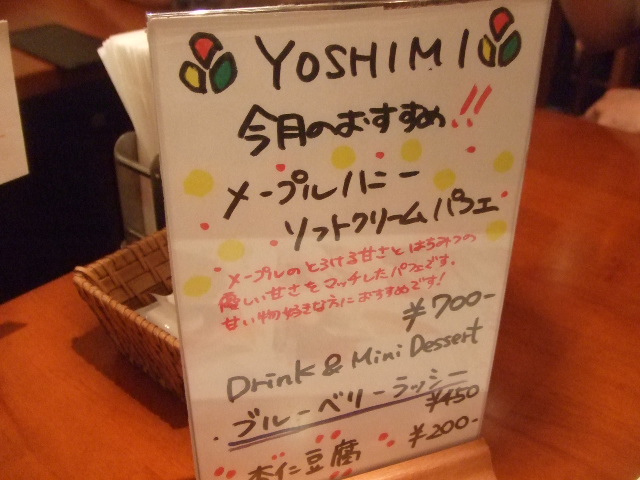 YOSHIMI
今月のおすすめ!!
メープルハニー
ソフトクリームパフェ
メープルのとろける甘さとはちみつの
優しい甘さをマッチしたパフェです。
甘い物好きな方におすすめです!
¥700-
Drink & Mini Dessert
・ブルーベリーラッシー
¥450
杏仁豆腐 ¥200-